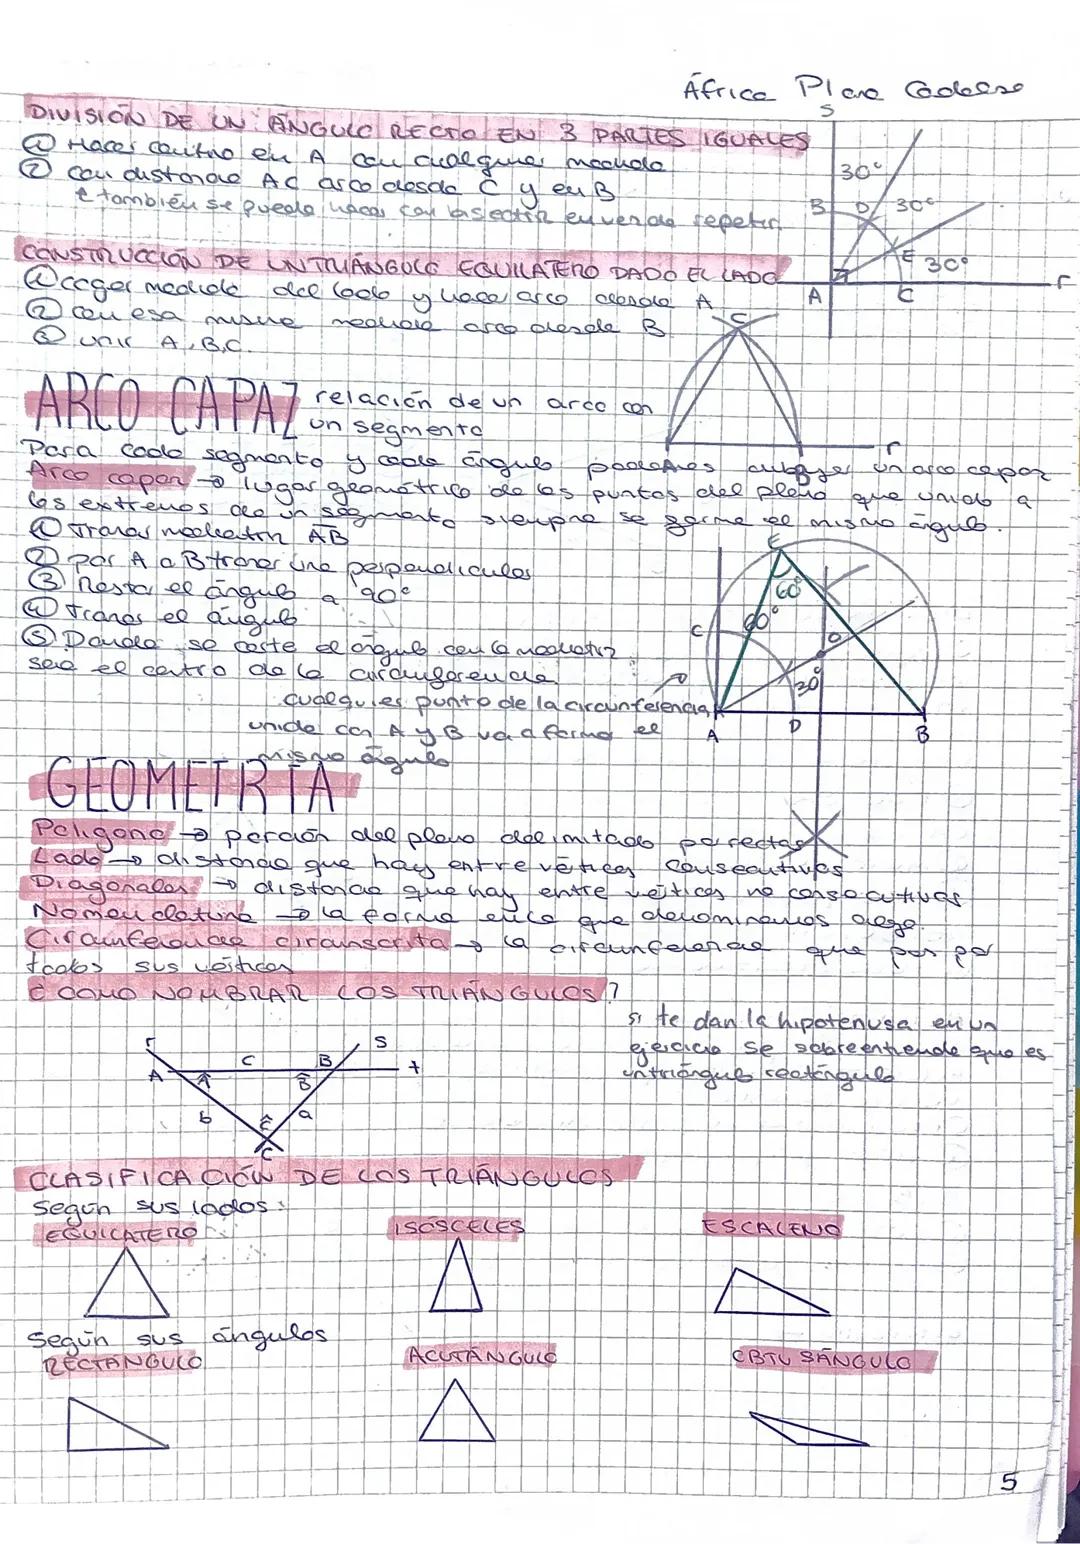 África Plana Cadelso
DIVISIÓN DE UN ÁNGULO RECTO EN 3 PARTES IGUALES
① Hacer centro en A con cualquier medida
② con distancia AC arco desde C y en B
también se puede hacer con bisectriz en vez de repetir
S
30°
B D 30°
E 30°
A C r
CONSTRUCCIÓN DE UN TRIÁNGULO EQUILATERO DADO EL LADO
① coger medida del lado y hacer arco desde A
② con esa misma medida arco desde B
③ unir A, B, C.
C
r
B
ARCO CAPAZ relación de un arco con
un segmento
Para cada segmento y cada ángulo podemos un arco capaz
Arco capaz → lugar geométrico de los puntos del plano que unido a
los extremos de un segmento siempre se forma el mismo ángulo.
① Trazar mediatriz AB
② por A o B trazar una perpendicular
③ Resta el ángulo a 90°
④ trazas el ángulo
⑤ Donde se corte el ángulo con la mediatriz
será el centro de la circunferencia
cualquier punto de la circunferencia
unido con A y B va a formar el
mismo ángulo
E
60°
C 60°
O
30°
A D B
GEOMETRÍA
Polígono → porción del plano delimitado por rectas
Lado → distancia que hay entre vértices consecutivos
Diagonales → distancia que hay entre vértices no consecutivos
Nomenclatura → la forma en la que denominamos algo.
Circunferencia circunscrita → la circunferencia que pasa por
todos sus vértices
¿CÓMO NOMBRAR LOS TRIÁNGULOS?
si te dan la hipotenusa en un
ejercicio se sobreentiende que es
un triángulo rectángulo
r c B s
A Â B̂ t
b Ĉ a
C
CLASIFICACIÓN DE LOS TRIÁNGULOS
Según sus lados:
EQUILATERO ISÓSCELES ESCALENO
Según sus ángulos
RECTÁNGULO ACUTÁNGULO OBTUSÁNGULO
5